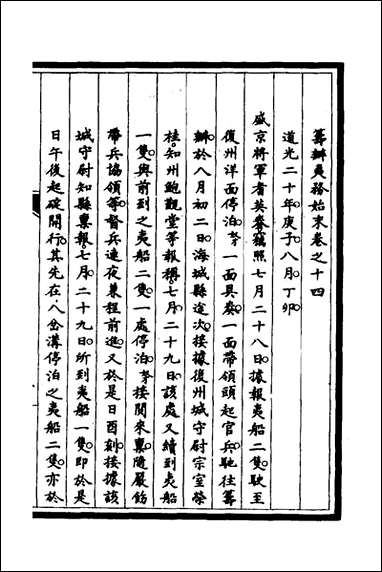 籌辦夷務始末卷之十四
道光二十年庚子八月丁卯
盛京將軍耆英奏竊照七月二十八日據報夷船二隻駛至
復州洋面停泊努一面具奏一面帶領頭起官兵馳往籌
辦於八月初二日海城縣途次接據復州城守尉宗室榮
桂知州鮑觀堂等報稱七月二十九日該處又續到夷船
一隻與前到之夷船二隻一處停泊努接閱來稟隨嚴飭
帶兵協領等督兵連夜兼程前進又於是日酉刻接據該
城守尉知縣稟報七月二十九日所到夷船一隻即於是
日午後起碇開行其先在八岔溝停泊之夷船二隻亦於